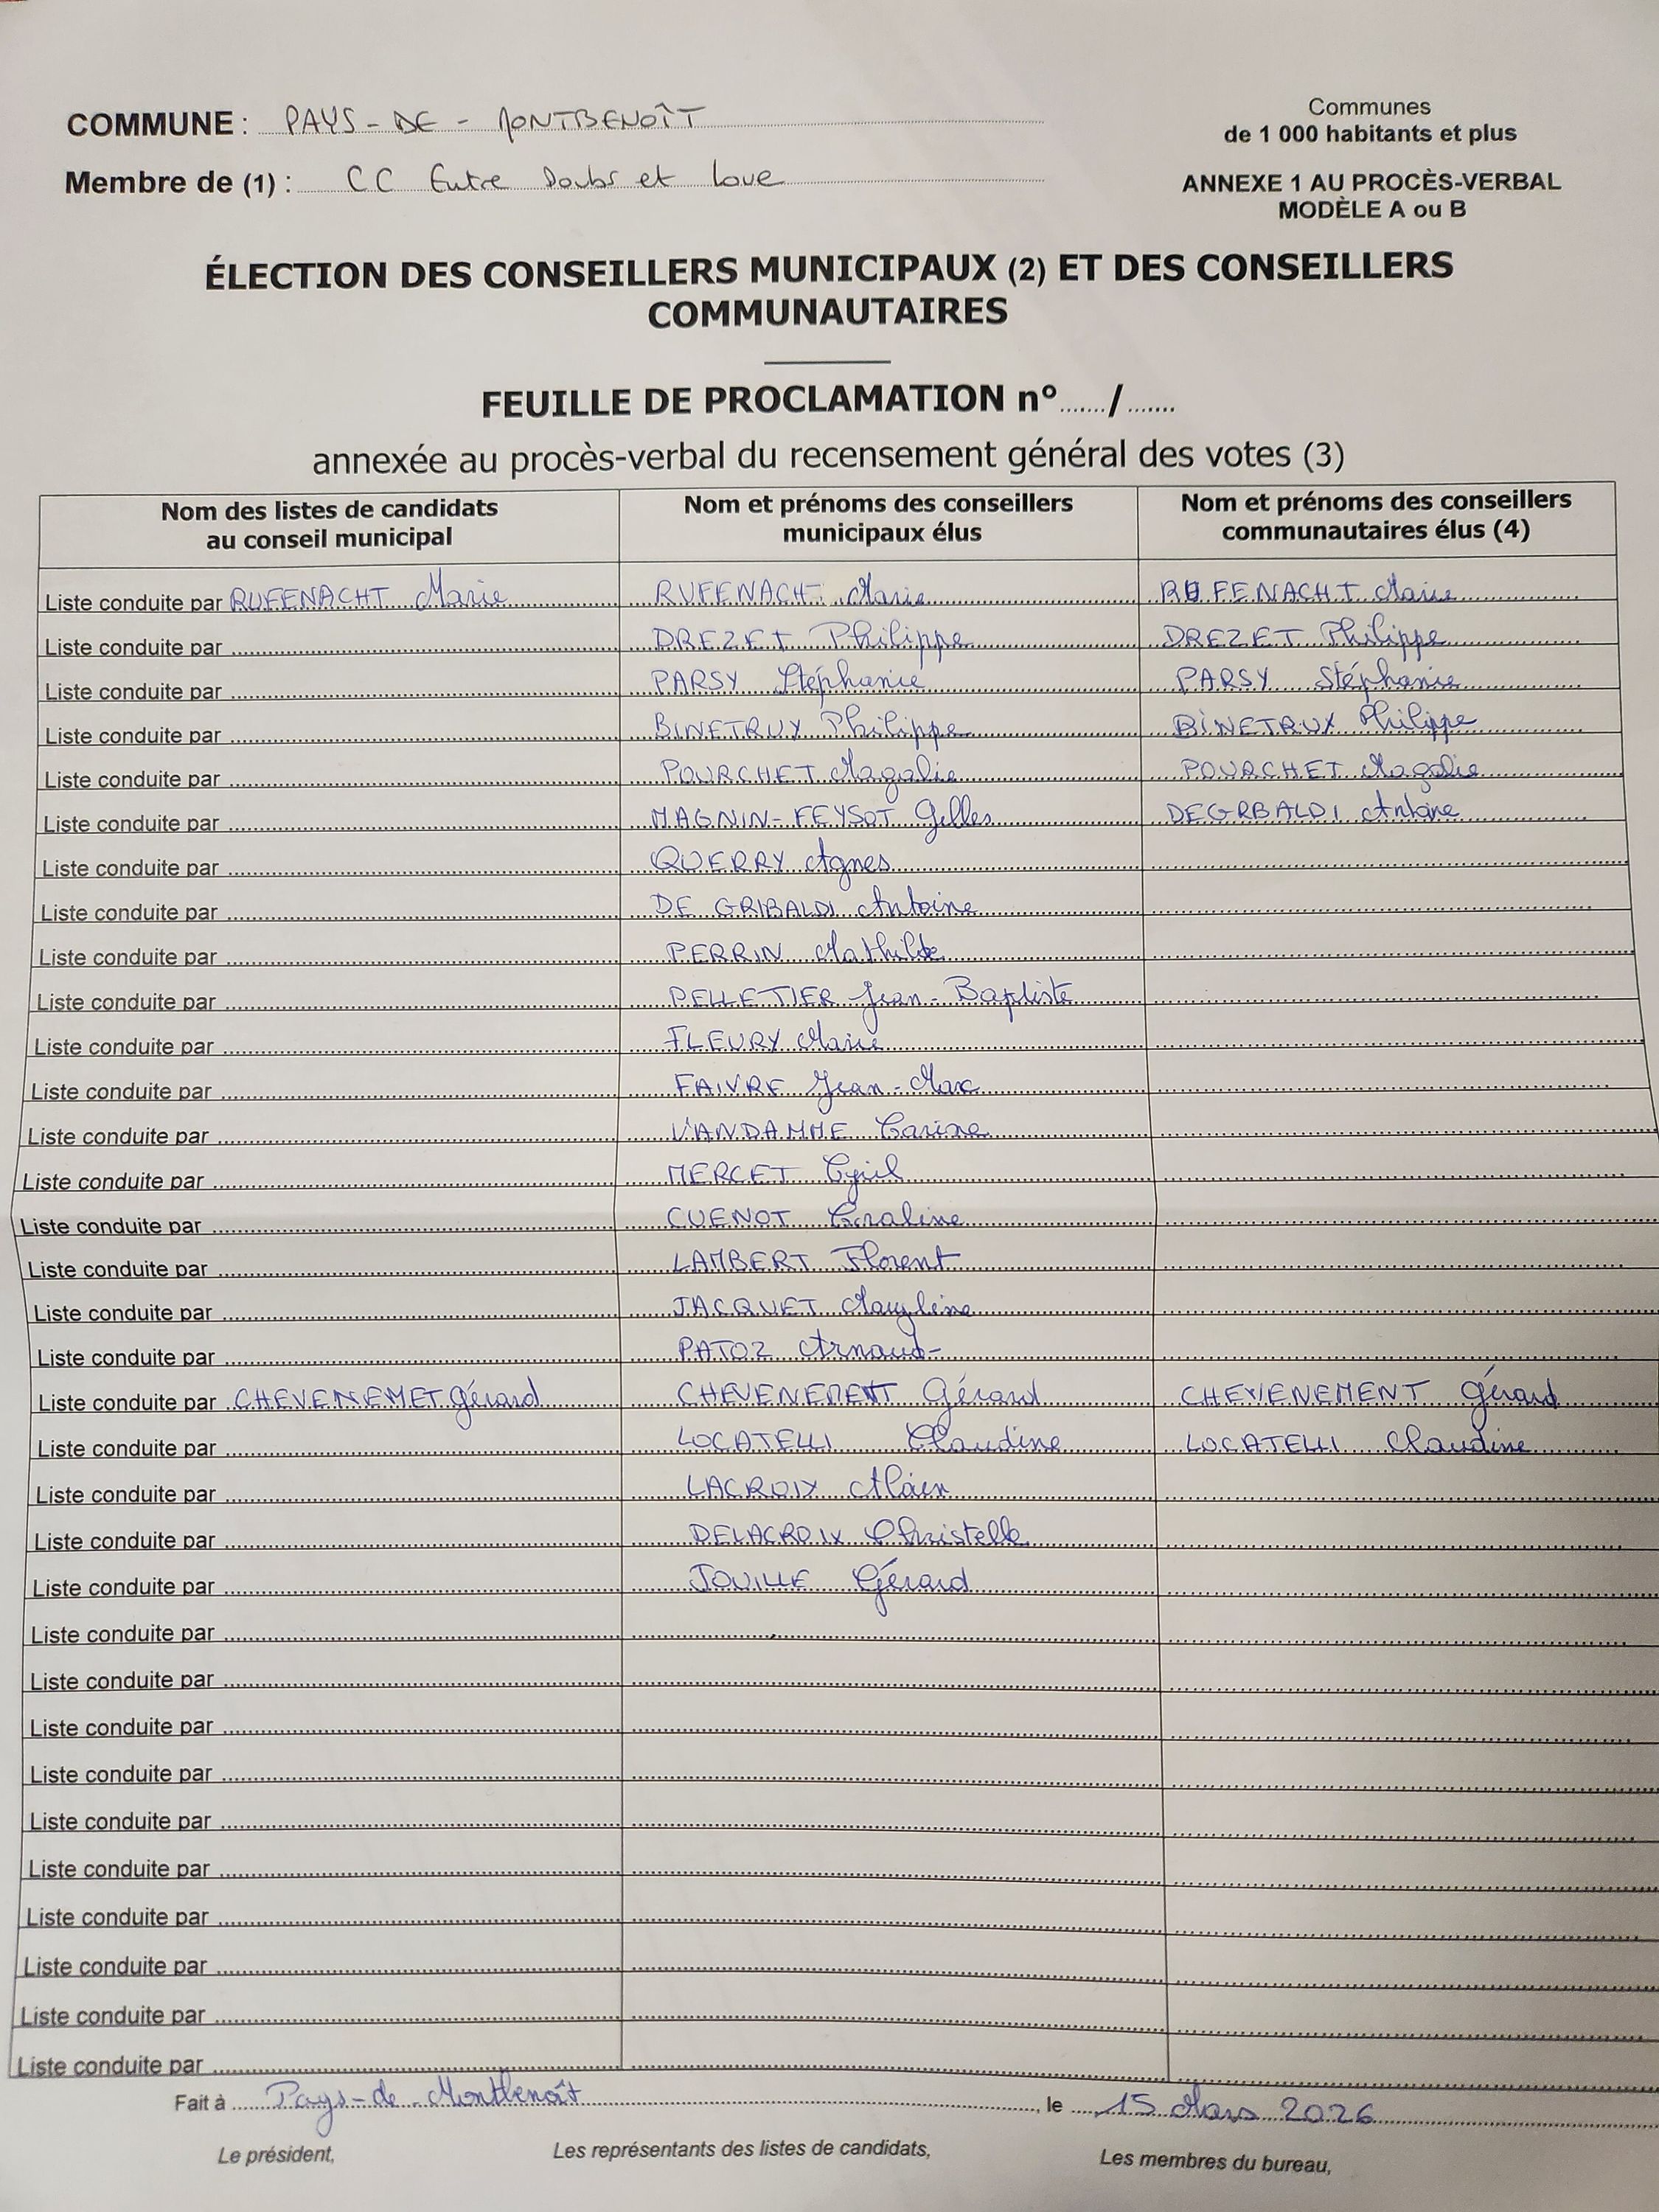 COMMUNE : PAYS-DE-MONTBENOÎT
Communes
de 1 000 habitants et plus
Membre de (1) : CC Entre Doubs et Loue
ANNEXE 1 AU PROCÈS-VERBAL
MODÈLE A ou B
ÉLECTION DES CONSEILLERS MUNICIPAUX (2) ET DES CONSEILLERS
COMMUNAUTAIRES
FEUILLE DE PROCLAMATION n°......./.......
annexée au procès-verbal du recensement général des votes (3)
Nom des listes de candidats
au conseil municipal
Nom et prénoms des conseillers
municipaux élus
Nom et prénoms des conseillers
communautaires élus (4)
Liste conduite par RUFENACHT Marie RUFENACHT Marie RUFENACHT Marie
Liste conduite par DREZET Philippe DREZET Philippe
Liste conduite par PARSY Stéphanie PARSY Stéphanie
Liste conduite par BINETRUY Philippe BINETRUY Philippe
Liste conduite par POURCHET Magalie POURCHET Magalie
Liste conduite par MAGNIN-FEYSOT Gilles DEGRBALDI Antoine
Liste conduite par QUERRY Agnes
Liste conduite par DE GRIBALDI Antoine
Liste conduite par PERRIN Mathilde
Liste conduite par PELLETIER Jean-Baptiste
Liste conduite par FLEURY Marie
Liste conduite par FAIVRE Jean-Marc
Liste conduite par VANDAMME Carine
Liste conduite par MERCET Cyril
Liste conduite par CUENOT Coraline
Liste conduite par LAMBERT Florent
Liste conduite par JACQUET Mayline
Liste conduite par PATOZ Arnaud
Liste conduite par CHEVENEMET Gérard CHEVENEMENT Gérard CHEVENEMENT Gérard
Liste conduite par LOCATELLI Claudine LOCATELLI Claudine
Liste conduite par LACROIX Alain
Liste conduite par DELACROIX Christelle
Liste conduite par JOUILLE Gérard
Liste conduite par
Liste conduite par
Liste conduite par
Liste conduite par
Liste conduite par
Liste conduite par
Liste conduite par
Liste conduite par
Liste conduite par
Liste conduite par
Fait à Pays-de-Montbenoît, le 15 Mars 2026
Le président,
Les représentants des listes de candidats,
Les membres du bureau,